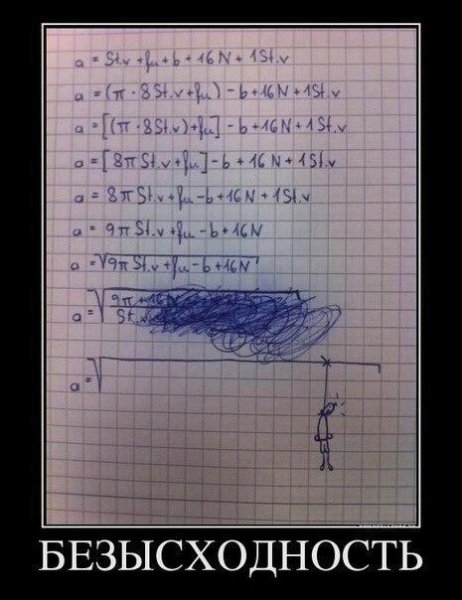 a = St.v + fu + b + 16N + 1St.v
a = (π · 8St.v + fu) - b + 16N + 1St.v
a = [(π · 8St.v) + fu] - b + 16N + 1St.v
a = [8π St.v + fu] - b + 16N + 1St.v
a = 8π St.v + fu - b + 16N + 1St.v
a = 9π St.v + fu - b + 16N
a = √9π St.v + fu - b + 16N
a = √9π + 16N
St.v
a = √
БЕЗЫСХОДНОСТЬ